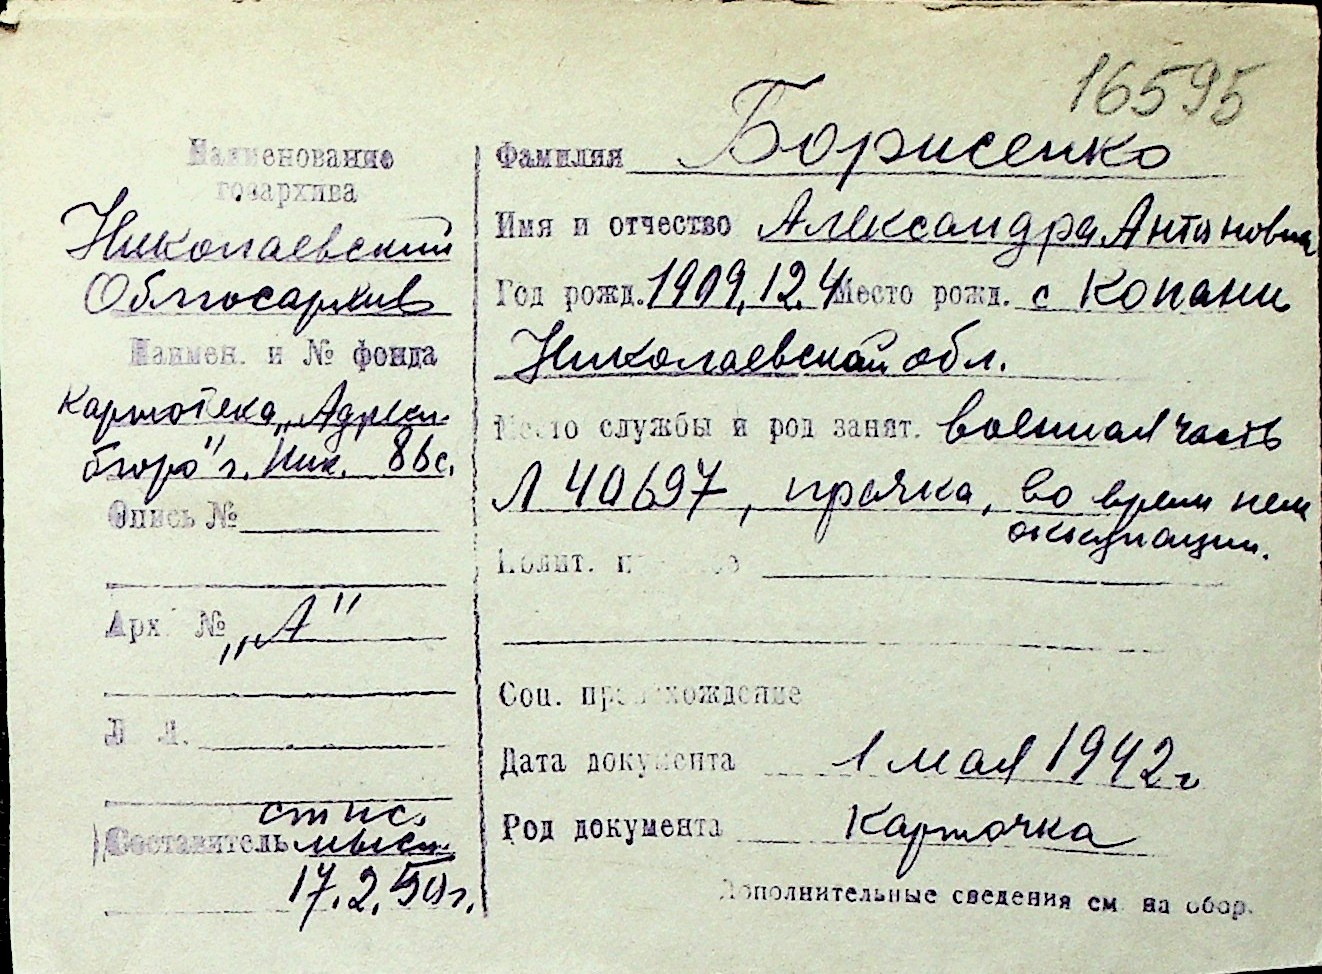 16595
Наименование
госархива
Николаевский
Облгосархив
Наимен. и № фонда
Картотека „Адресн.
бюро" г. Ник. 86с.
Опись №
Арх. № „А"
Л. Л.
Составитель
17.2.50г.
Фамилия Борисенко
Имя и отчество Александра Антоновна
Год рожд. 1909.12.4 Место рожд. с Копани
Николаевской обл.
Место службы и род занят. военная часть
Л 40697, прачка, во время нем
оккупации.
Полит.
Соц. происхождение
Дата документа 1 мая 1942г
Род документа Карточка
Дополнительные сведения см на обор.